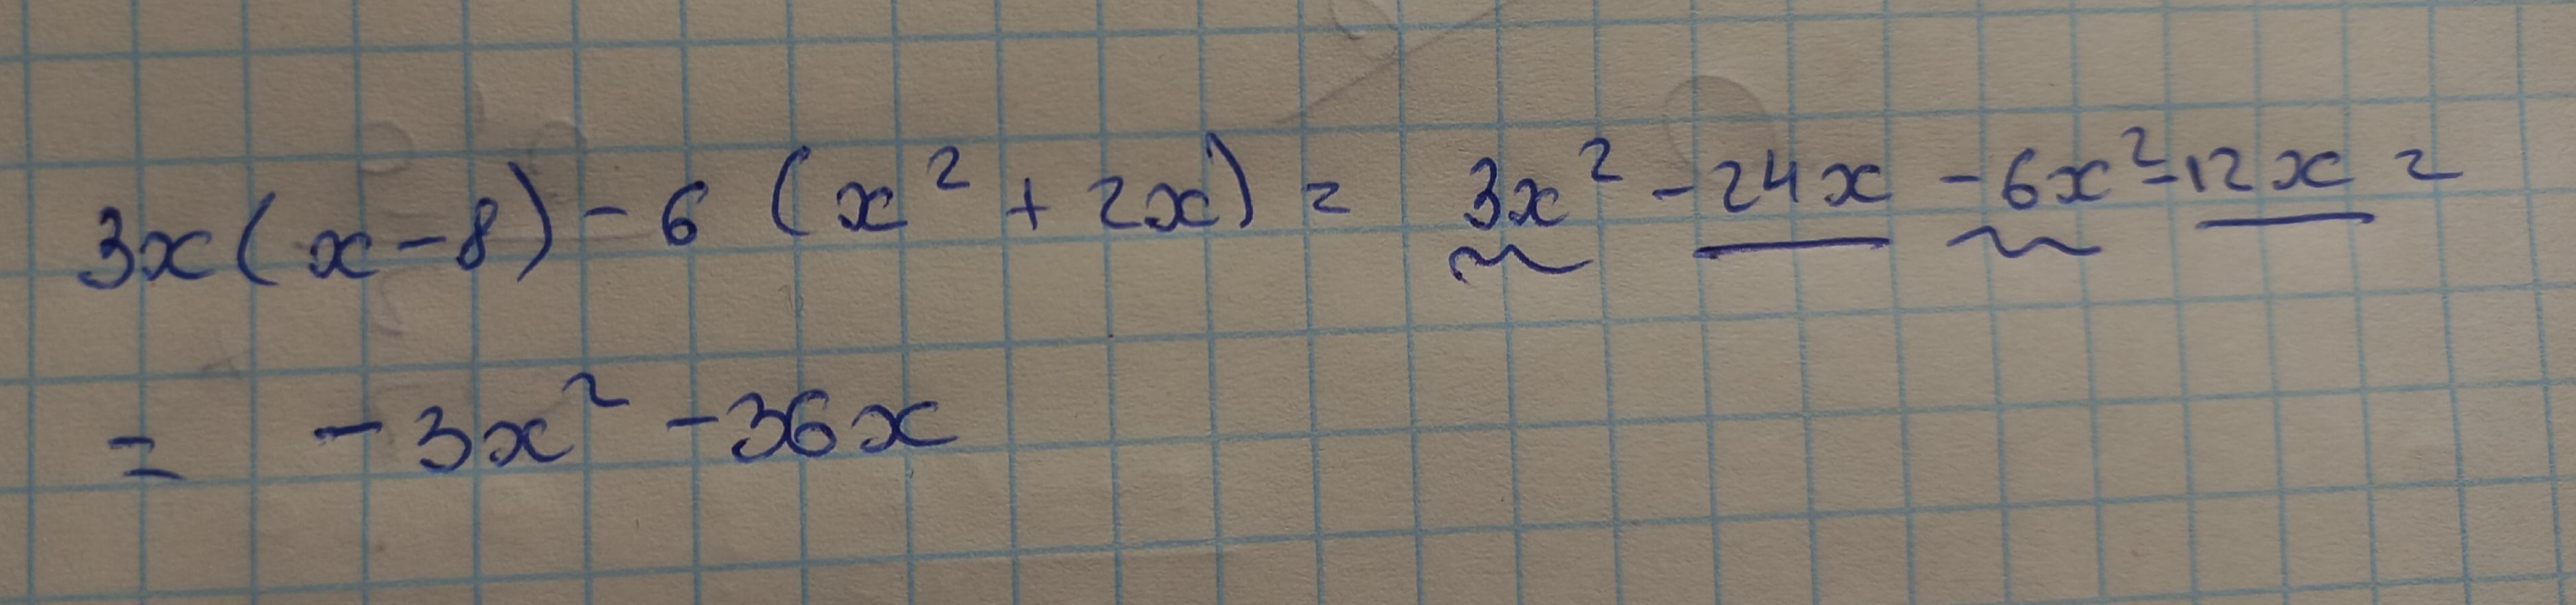 3x(x-8)-6(x²+2x)= 3x²-24x-6x²-12x=
= -3x²-36x